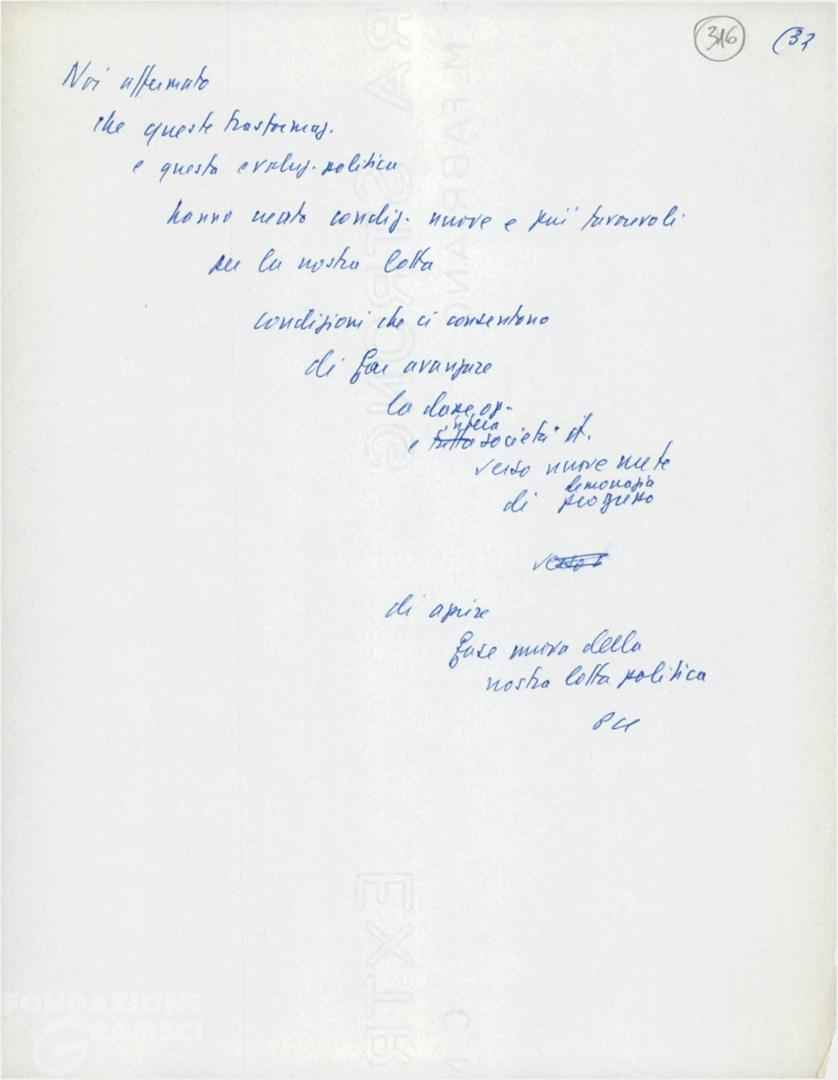 316 (32
Noi affermato
che queste trasformaz.
e questa evoluz. politica
hanno creato condiz. nuove e più favorevoli
per la nostra lotta
condizioni che ci consentono
di far avanzare
la classe op.
intera
e tutta società it.
verso nuove mete
democrazia
di progresso
verso
di aprire
fase nuova della
nostra lotta politica
FONDAZIONE
GRAMSCI
EXTRA STRONG
C.M.FABRIANO
EXTR
C M